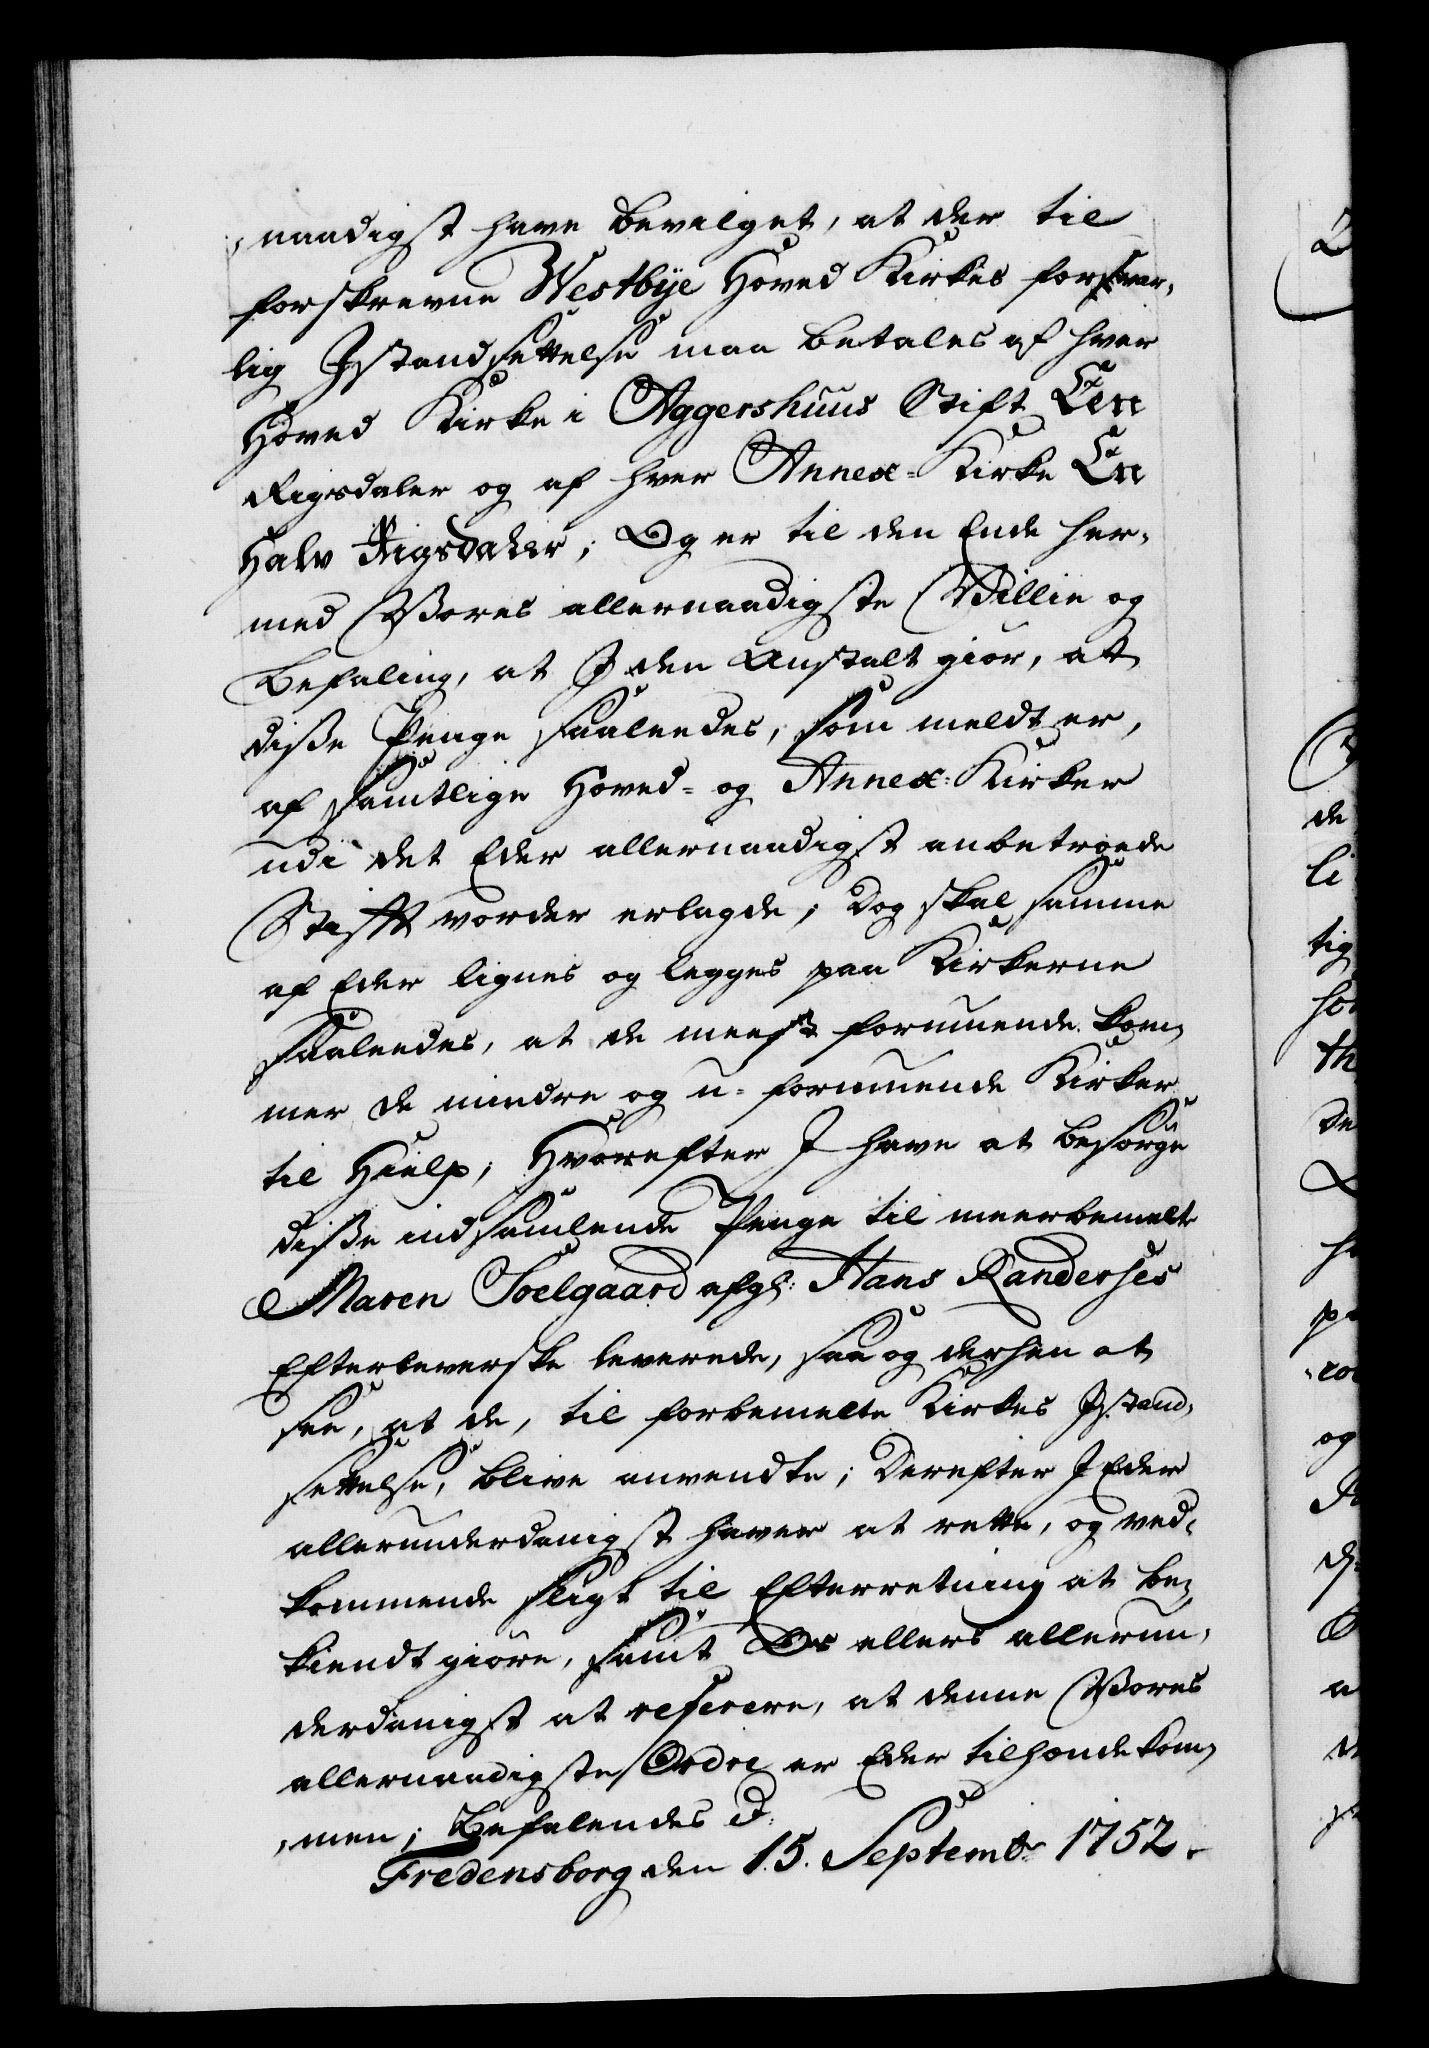 naadigst have bevilget, at der til
forskrevne Westbÿe Hoved Kirkes forsvar-
lig Istandsettelse maa betales af hver
Hoved Kirke i Aggershuus Stift Een
Rigsdaler og af hver Annex-Kirke En
Halv Rigsdaler; Og er til den Ende her-
med Vores allernaadigste Villie og
Befaling, at I den Anstalt giør, at
disse Penge saaleedes, som meldt er,
af samtlige Hoved- og Annex-Kirker
udi det Eder allernaadigst anbetroede
Stift vorder erlagde; Dog skal samme
af Eder lignes og legges paa Kirkerne
saaleedes, at de meest formuende kom-
mer de mindre og u-formuende Kirker
til Hielp; Hvorefter I have at besørge
disse indsamlende Penge til meerbemelte
Maren Soelgaard afg: Hans Randerses
Efterleverske leverede, saa og derhen at
see, at de, til forbemelte Kirkes Istand-
settelse, blive anvendte; Derefter I Eder
allerunderdanigst haver at rette, og ved-
kommende sligt til Efterretning at be-
kiendtgiøre, samt Os allers allerun-
derdanigst at referere, at denne Vores
allernaadigste Ordre er Eder tilhændekom-
men; Befalendes d:
Fredensborg den 15. Septembr 1752.